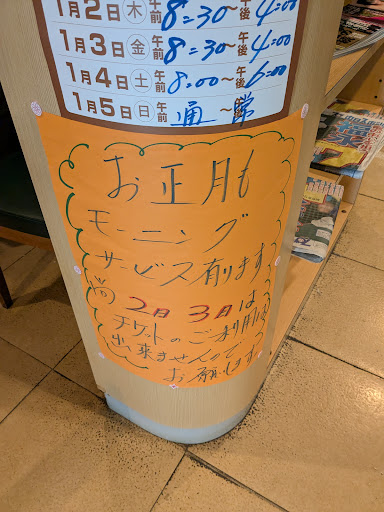 1月2日 木 午前 8=30~午後 4=00
1月3日 金 午前 8=30~午後 4=00
1月4日 土 午前 8=00~午後 6=00
1月5日 日 午前 通~常
お正月も
モーニング
サービス有ります
尚 2日 3日は
チケットのご利用は
出来ませんので
お願いします